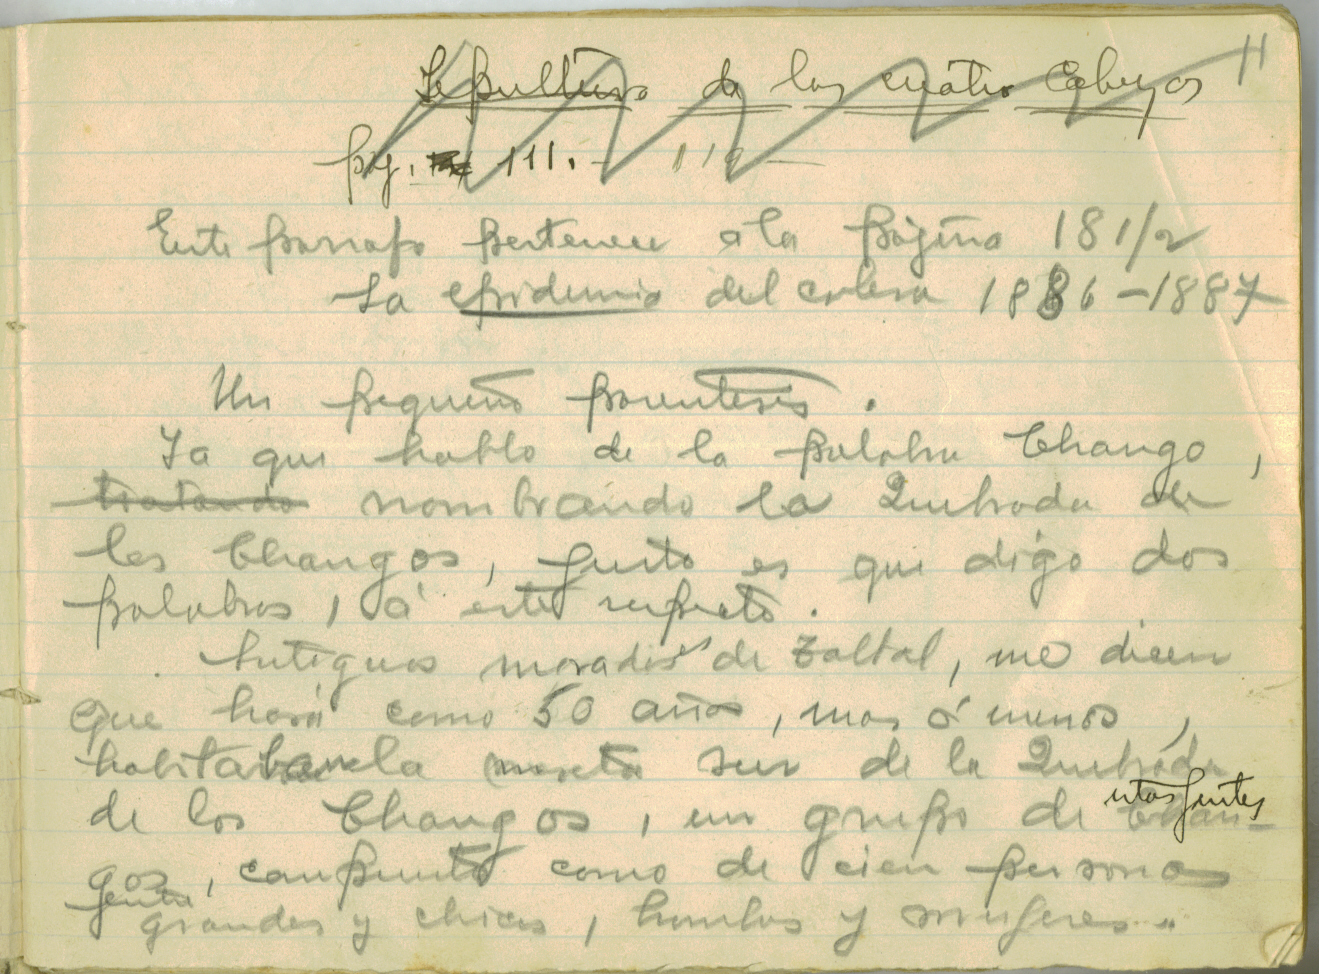 11
Sepultura de las cuatro Cabezas
pag. 111. - 112 -
Este parrafo pertenece a la página 181/2
La epidemia del colera 1886-1887
Un pequeño parentesis.
Ya que hablo de la palabra Chango,
tratando nombrando la Quebrada de
los Changos, justo es que diga dos
palabras, á este respecto.
Antiguos moradis de Taltal, me dicen
que hará como 50 años, mas ó menos,
habitaban la meseta sur de la Quebrada
de los Changos, un grupo de Chan-
estas gentes
gos, conjunto como de cien personas
gente
grandes y chicas, hombres y mujeres..